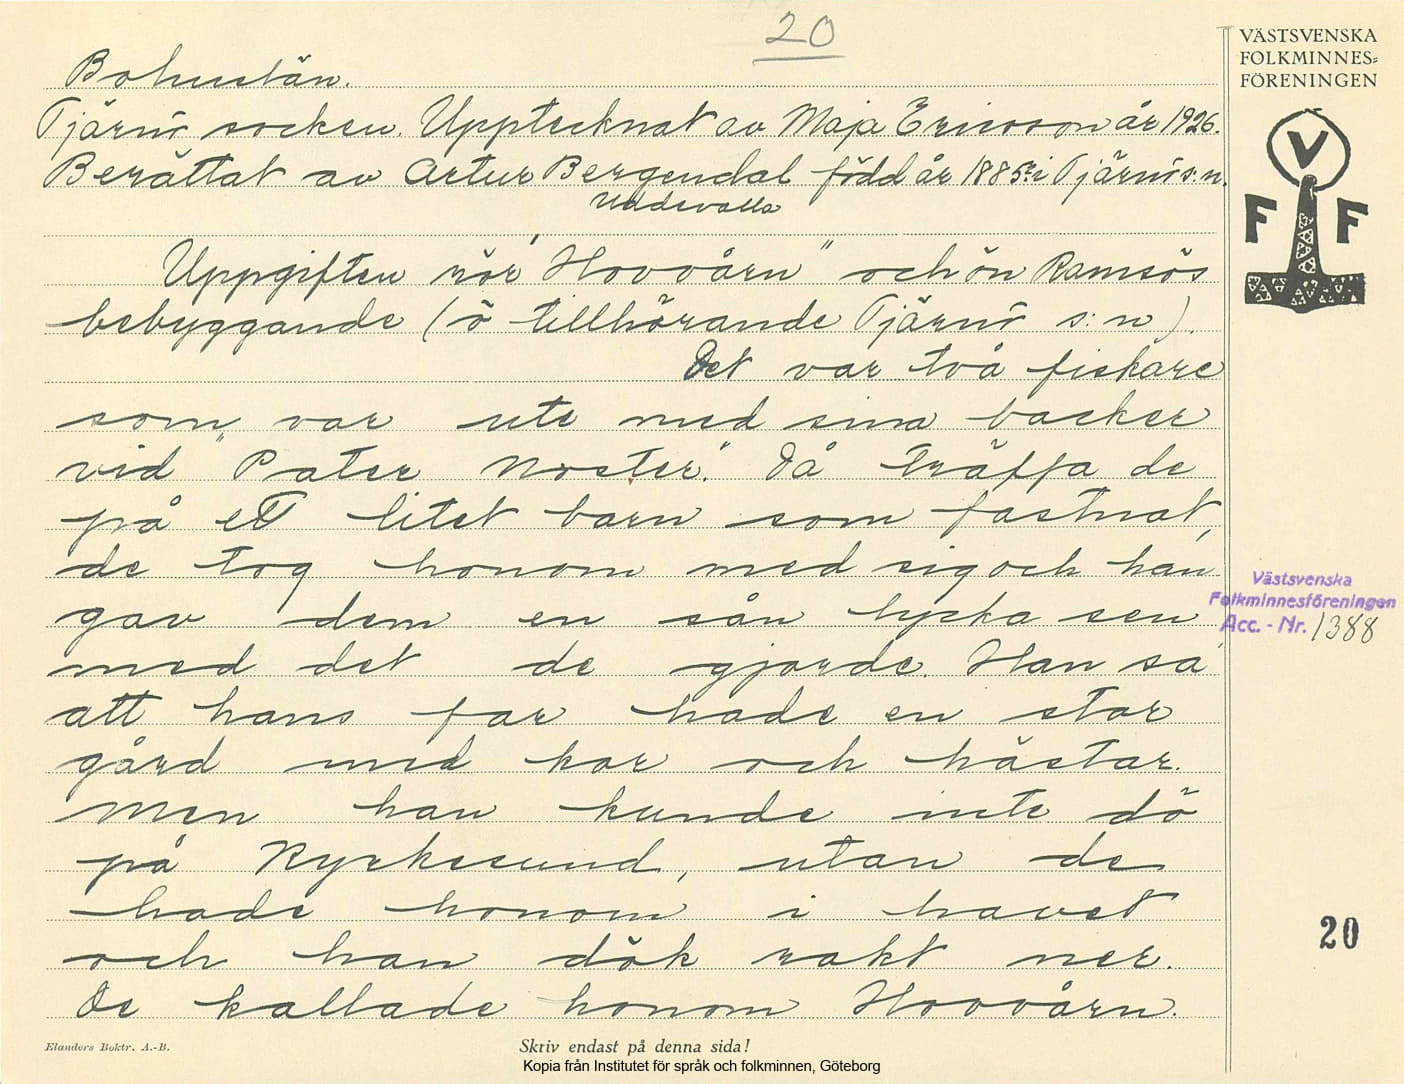 20
VÄSTSVENSKA
FOLKMINNES=
FÖRENINGEN
V
F F
Bohuslän.
Tjärnö socken. Upptecknat av Maja Ericsson år 1926.
Berättat av Artur Bergendal född år 1885 i Tjärnö s:n.
Uddevalla
Uppgiften rör "Hovvårn" och ön Ramsös
bebyggande (ö tillhörande Tjärnö s:n).
Det var två fiskare
som var ute med sina backer
vid "Pater Noster". Då träffa de
på ett litet barn som fastnat,
de tog honom med sig och han
gav dem en sån lycka sen
med det de gjorde. Han sa,
att hans far hade en stor
gård med kor och hästar.
Men han kunde inte dö
på Kyrkesund, utan de
hade honom i havet
och han dök rakt ner.
De kallade honom Hovvårn.
Västsvenska
Folkminnesföreningen
Acc. - Nr. 1388
20
Elanders Boktr. A.-B.
Skriv endast på denna sida!
Kopia från Institutet för språk och folkminnen, Göteborg